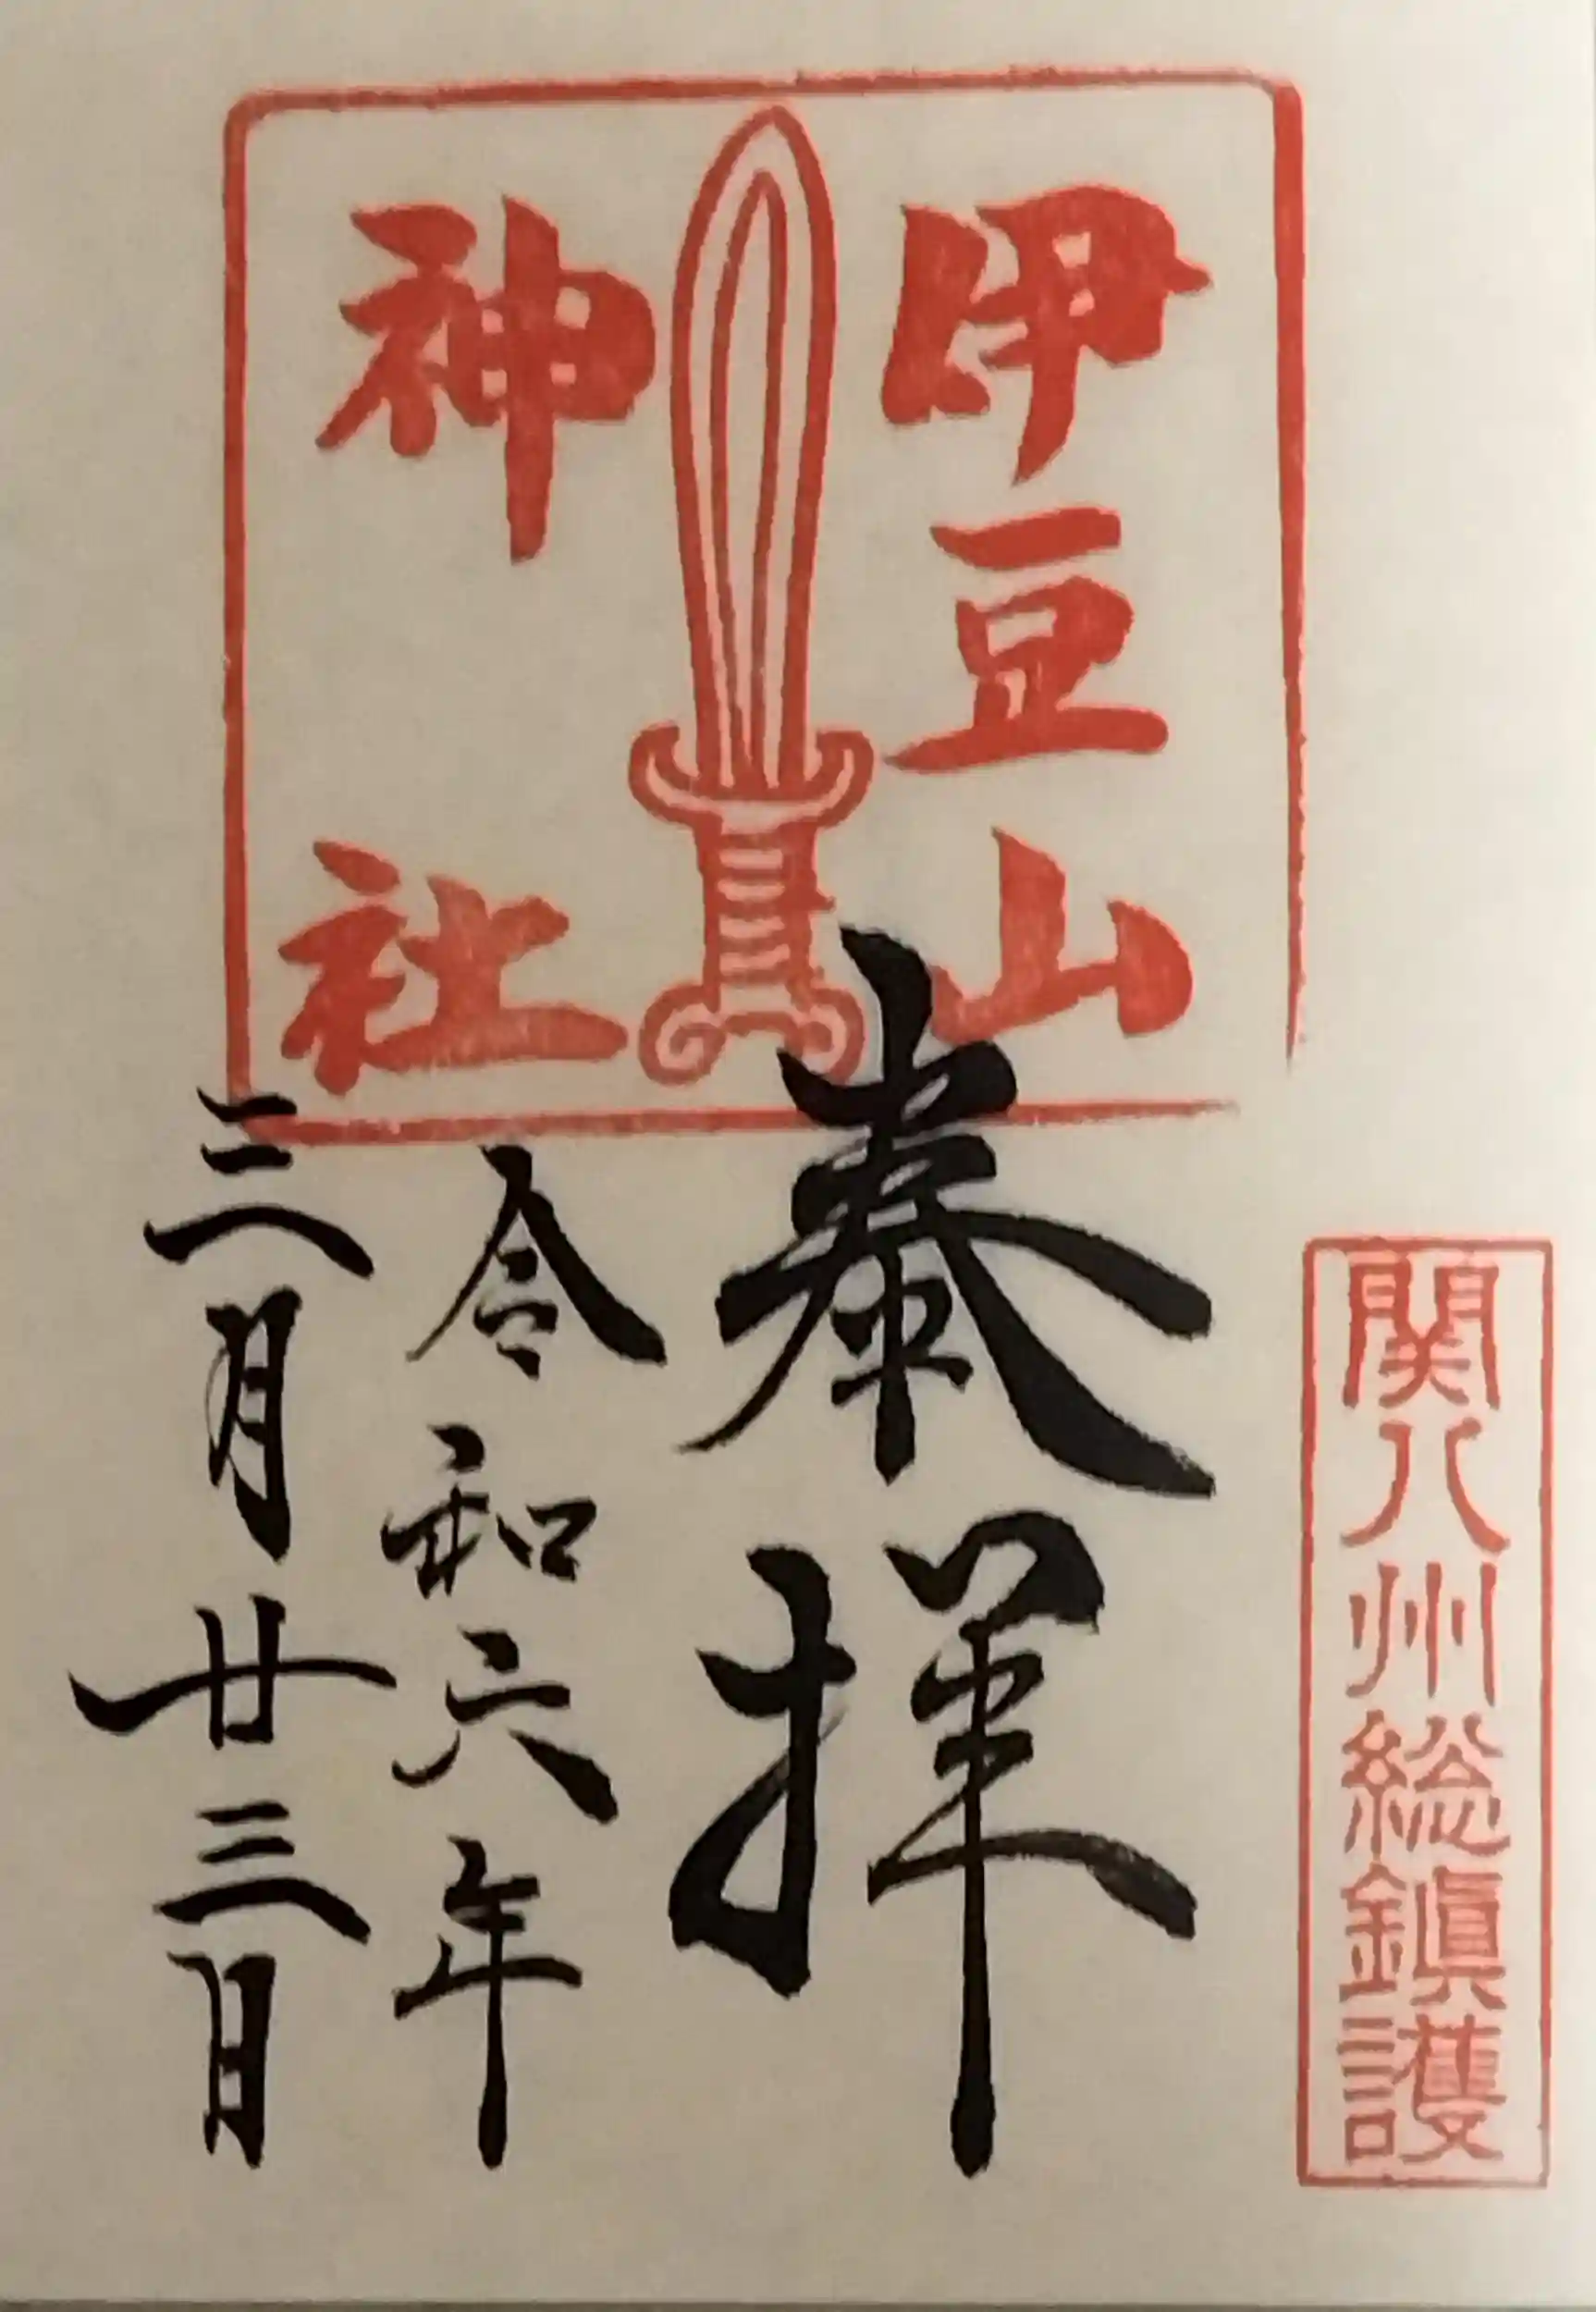 関八州総鎮護
伊豆山
神社
奉拝
令和六年
三月廿三日